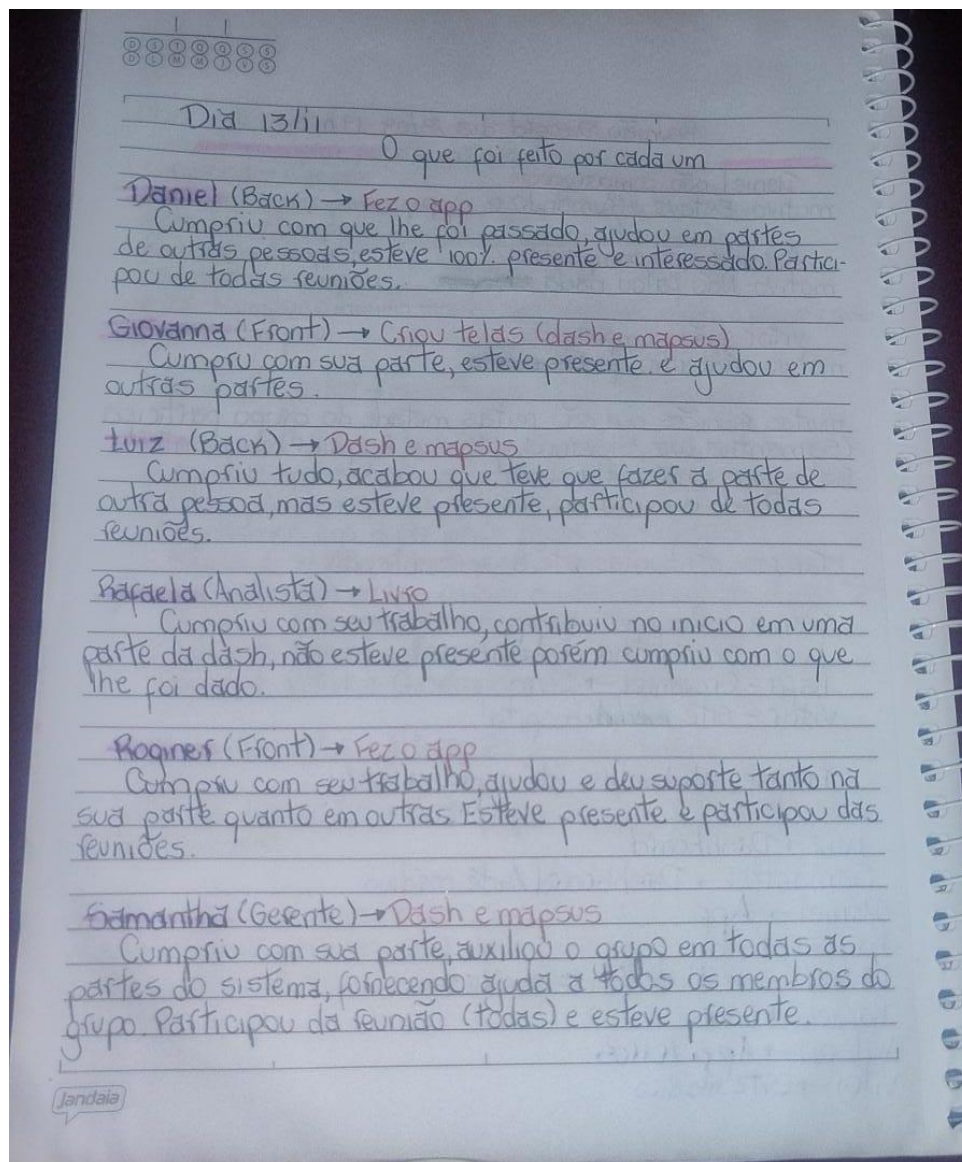 D S T Q Q S S
D L M M J V S
Dia 13/11
O que foi feito por cada um
Daniel (Back) → Fez o app
Cumpriu com que lhe foi passado, ajudou em partes
de outras pessoas, esteve 100% presente e interessado. Partici-
pou de todas reuniões.
Giovanna (Front) → Criou telas (dash e mapsus)
Cumpru com sua parte, esteve presente e ajudou em
outras partes.
Luiz (Back) → Dash e mapsus
Cumpriu tudo, acabou que teve que fazer a parte de
outra pessoa, mas esteve presente, participou de todas
reuniões.
Rafaela (Analista) → Livro
Cumpriu com seu trabalho, contribuiu no inicio em uma
parte da dash, não esteve presente porém cumpriu com o que
lhe foi dado.
Roginer (Front) → Fez o app
Cumpriu com seu trabalho, ajudou e deu suporte tanto na
sua parte quanto em outras. Esteve presente e participou das
reuniões.
Samantha (Gerente) → Dash e mapsus
Cumpriu com sua parte, auxiliou o grupo em todas as
partes do sistema, fornecendo ajuda a todos os membros do
grupo. Participou da reunião (todas) e esteve presente.
Jandaia